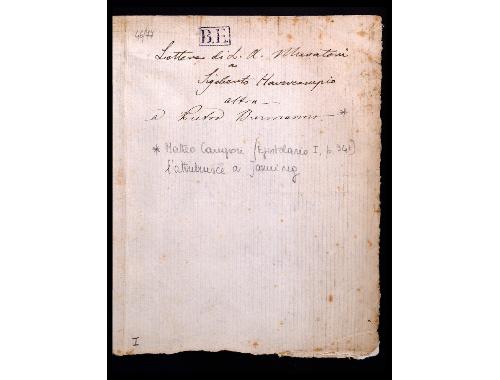 46/77
B.E.
Lettere di L. A. Muratori
a
Sigeberto Havercampio
altra
a Pietro Burmanno *
* Matteo Campori (Epistolario I, p. 34)
l'attribuisce a
I